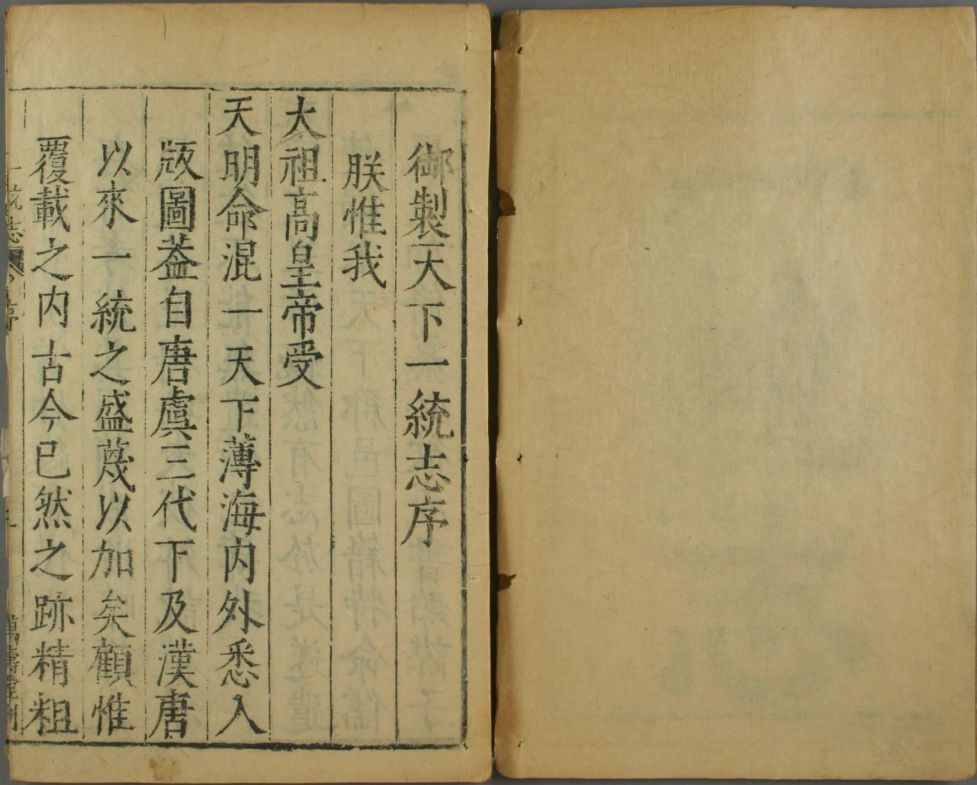 御製天下一統志序
朕惟我
太祖高皇帝受
天明命混一天下薄海内外悉入
版圖葢自唐虞三代下及漢唐
以來一統之盛蔑以加矣顧惟
覆載之内古今已然之跡精粗
一統志
序